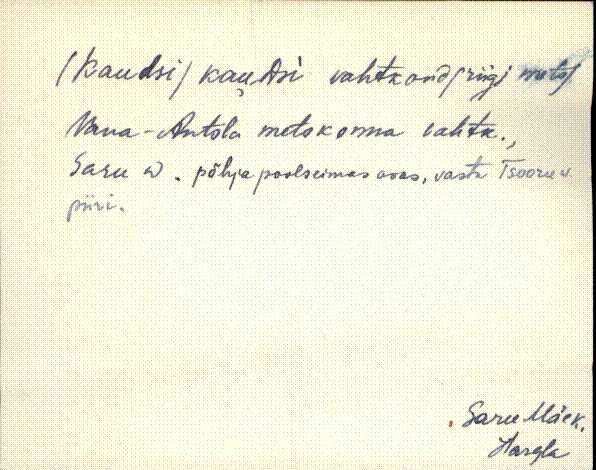 /Kaudsi/ kaudsi vahtkond/riigi mets/
Vana-Antsla metskonna vahtk.,
Saru w. põhja poolseimas osas, vasta Tsooru w.
piiri.
Saru Mäek.
Hargla